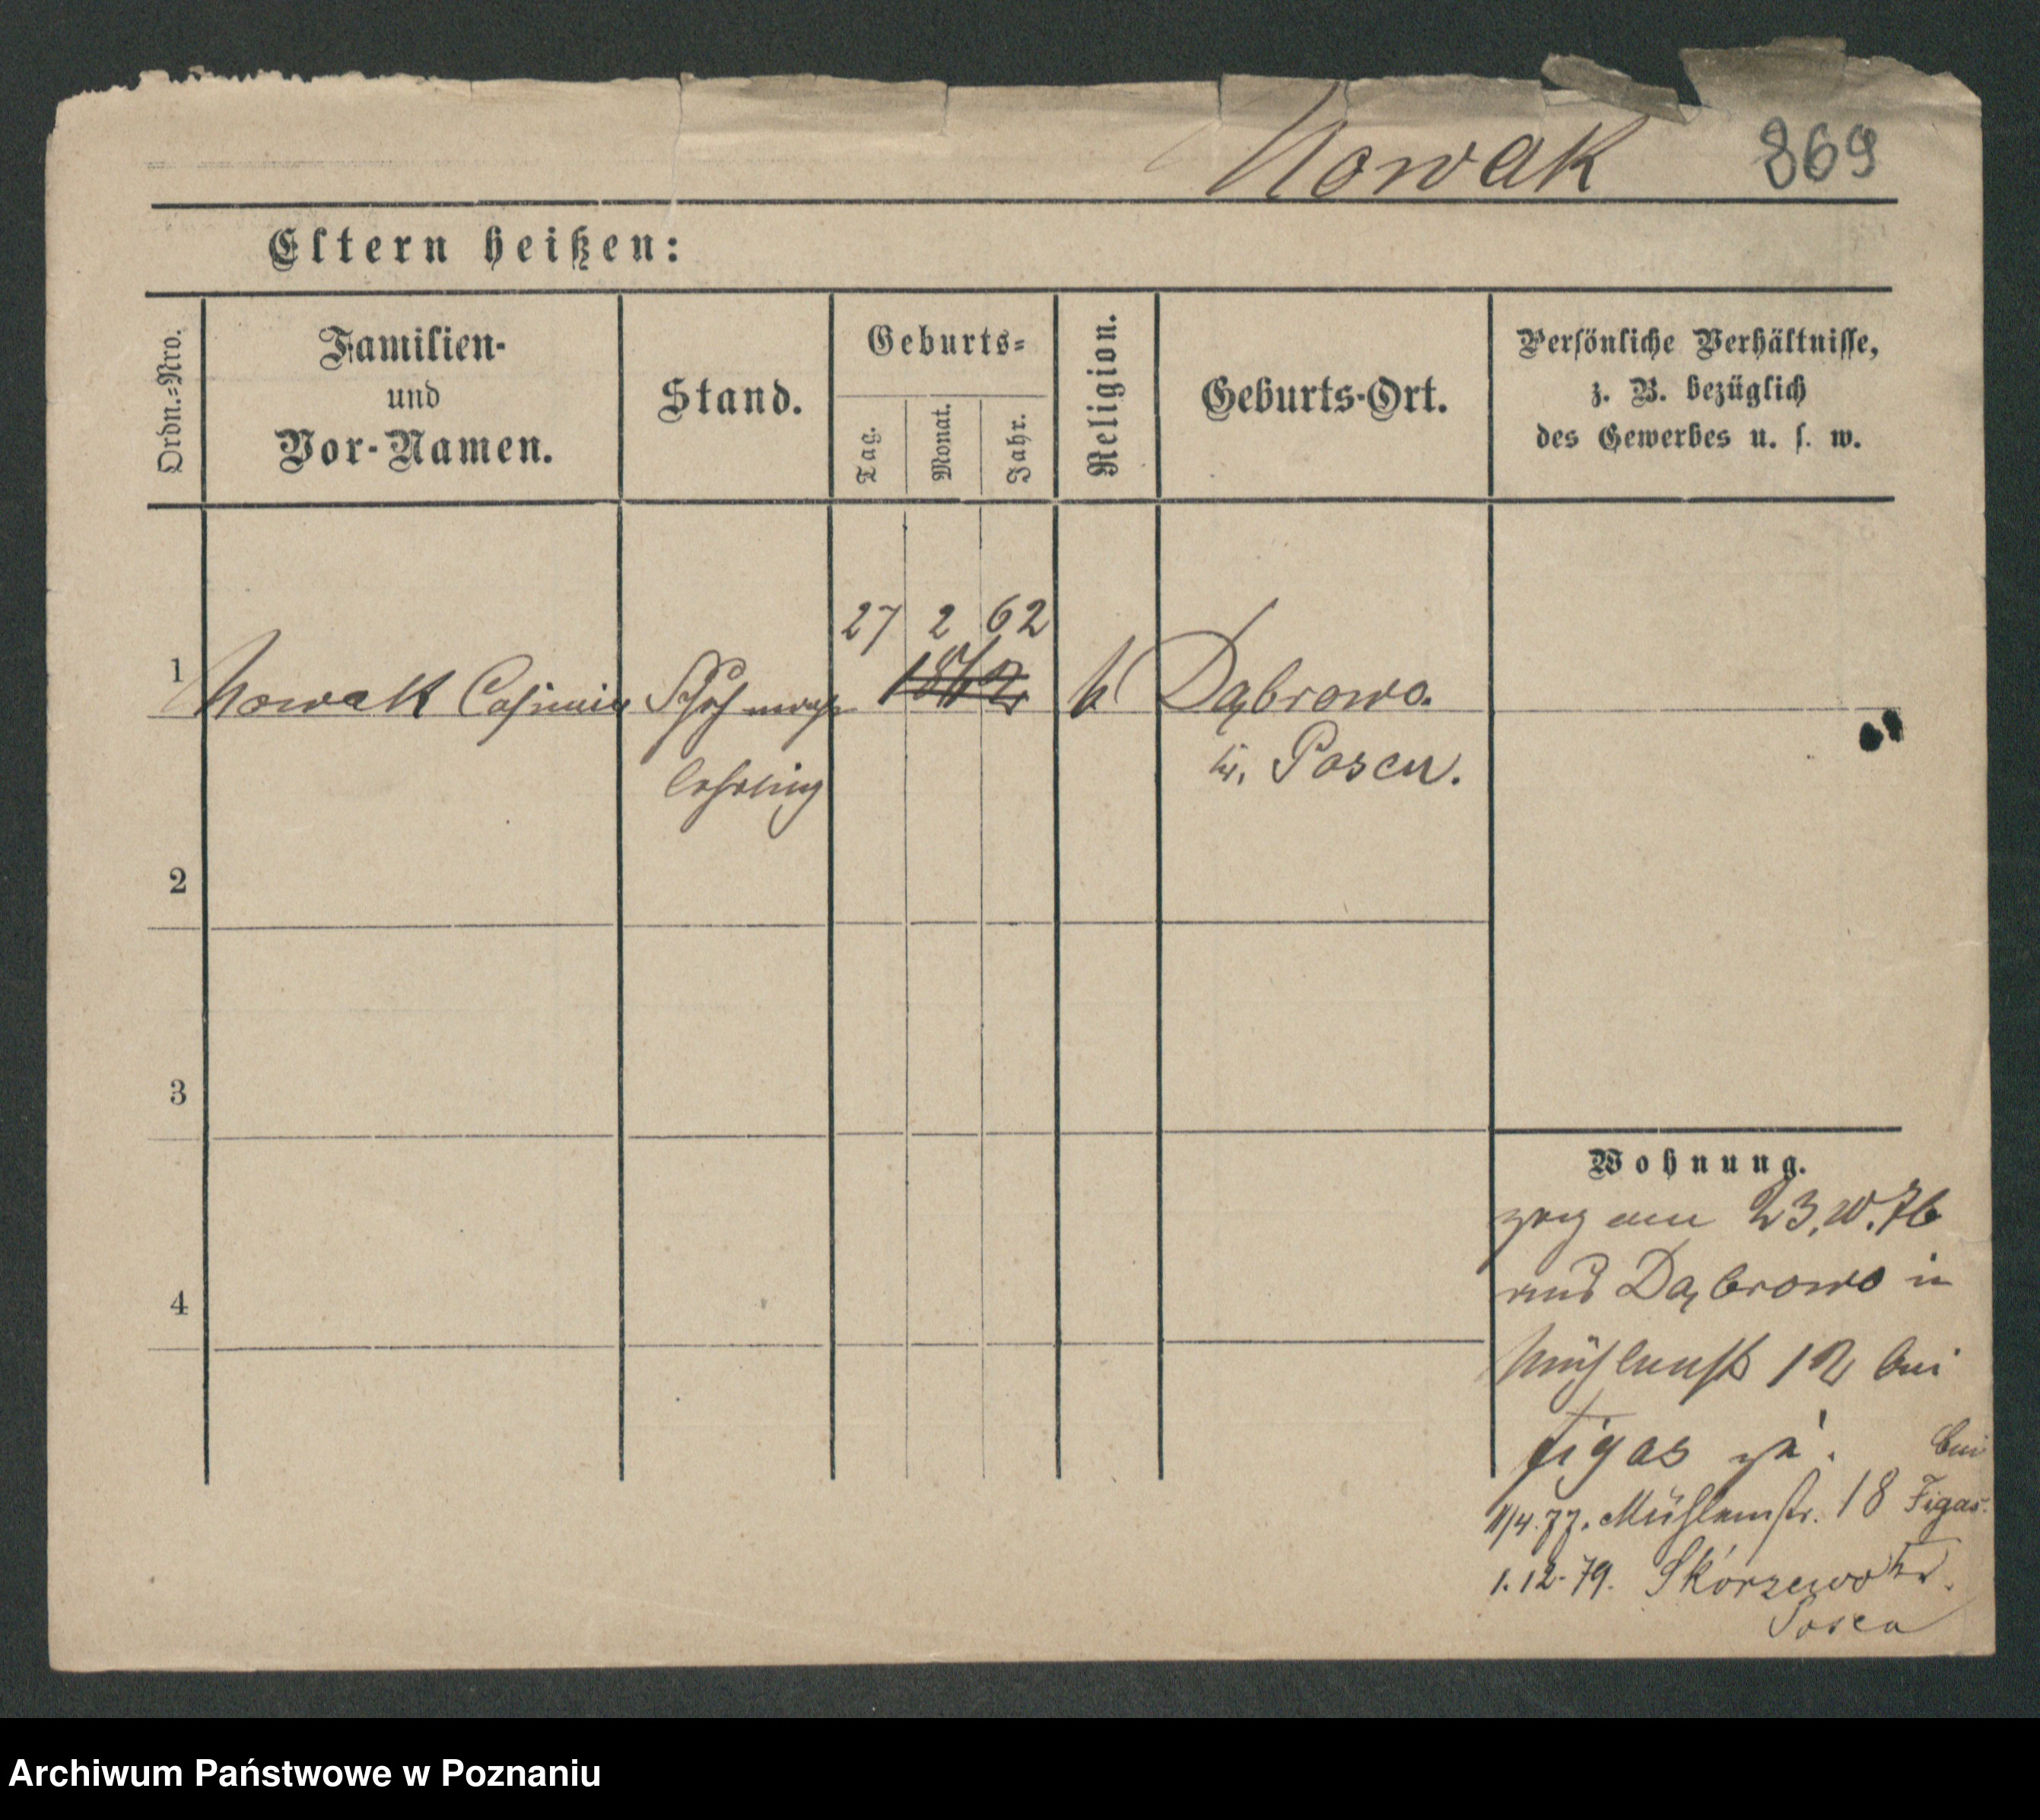 Nowak 869
Eltern heißen:
Ordn.-Nro.
Familien-
und
Vor-Namen.
Stand.
Geburts-
Tag.
Monat.
Jahr.
Religion.
Geburts-Ort.
Persönliche Verhältnisse,
z. B. bezüglich
des Gewerbes u. s. w.
27 2 62
1 Nowak Casimir 1862 k Dąbrowo.
lehrling Kr. Posen.
2
3
4
Wohnung.
zog am 23.10.76
aus Dąbrowo in
Mühlenstr 12 bei
Figas zu.
bei
1/4.77. Mühlenstr. 18 Figas.
1.12.79. Skórzewo Kr.
Posen
Archiwum Państwowe w Poznaniu